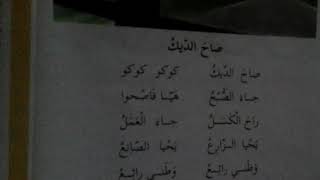 صَاحَ الدِّيكُ
صَاحَ الدِّيكُ كُوكُو كُوكُو
جَاءَ الصُّبْحُ هَيَّا فَاصْحُوا
رَاحَ الْكَسَلُ جَاءَ الْعَمَلُ
يَحْيَا الزَّارِعُ يَحْيَا الصَّانِعُ
وَطَنِي رَائِعُ وَطَنِي رَائِعُ